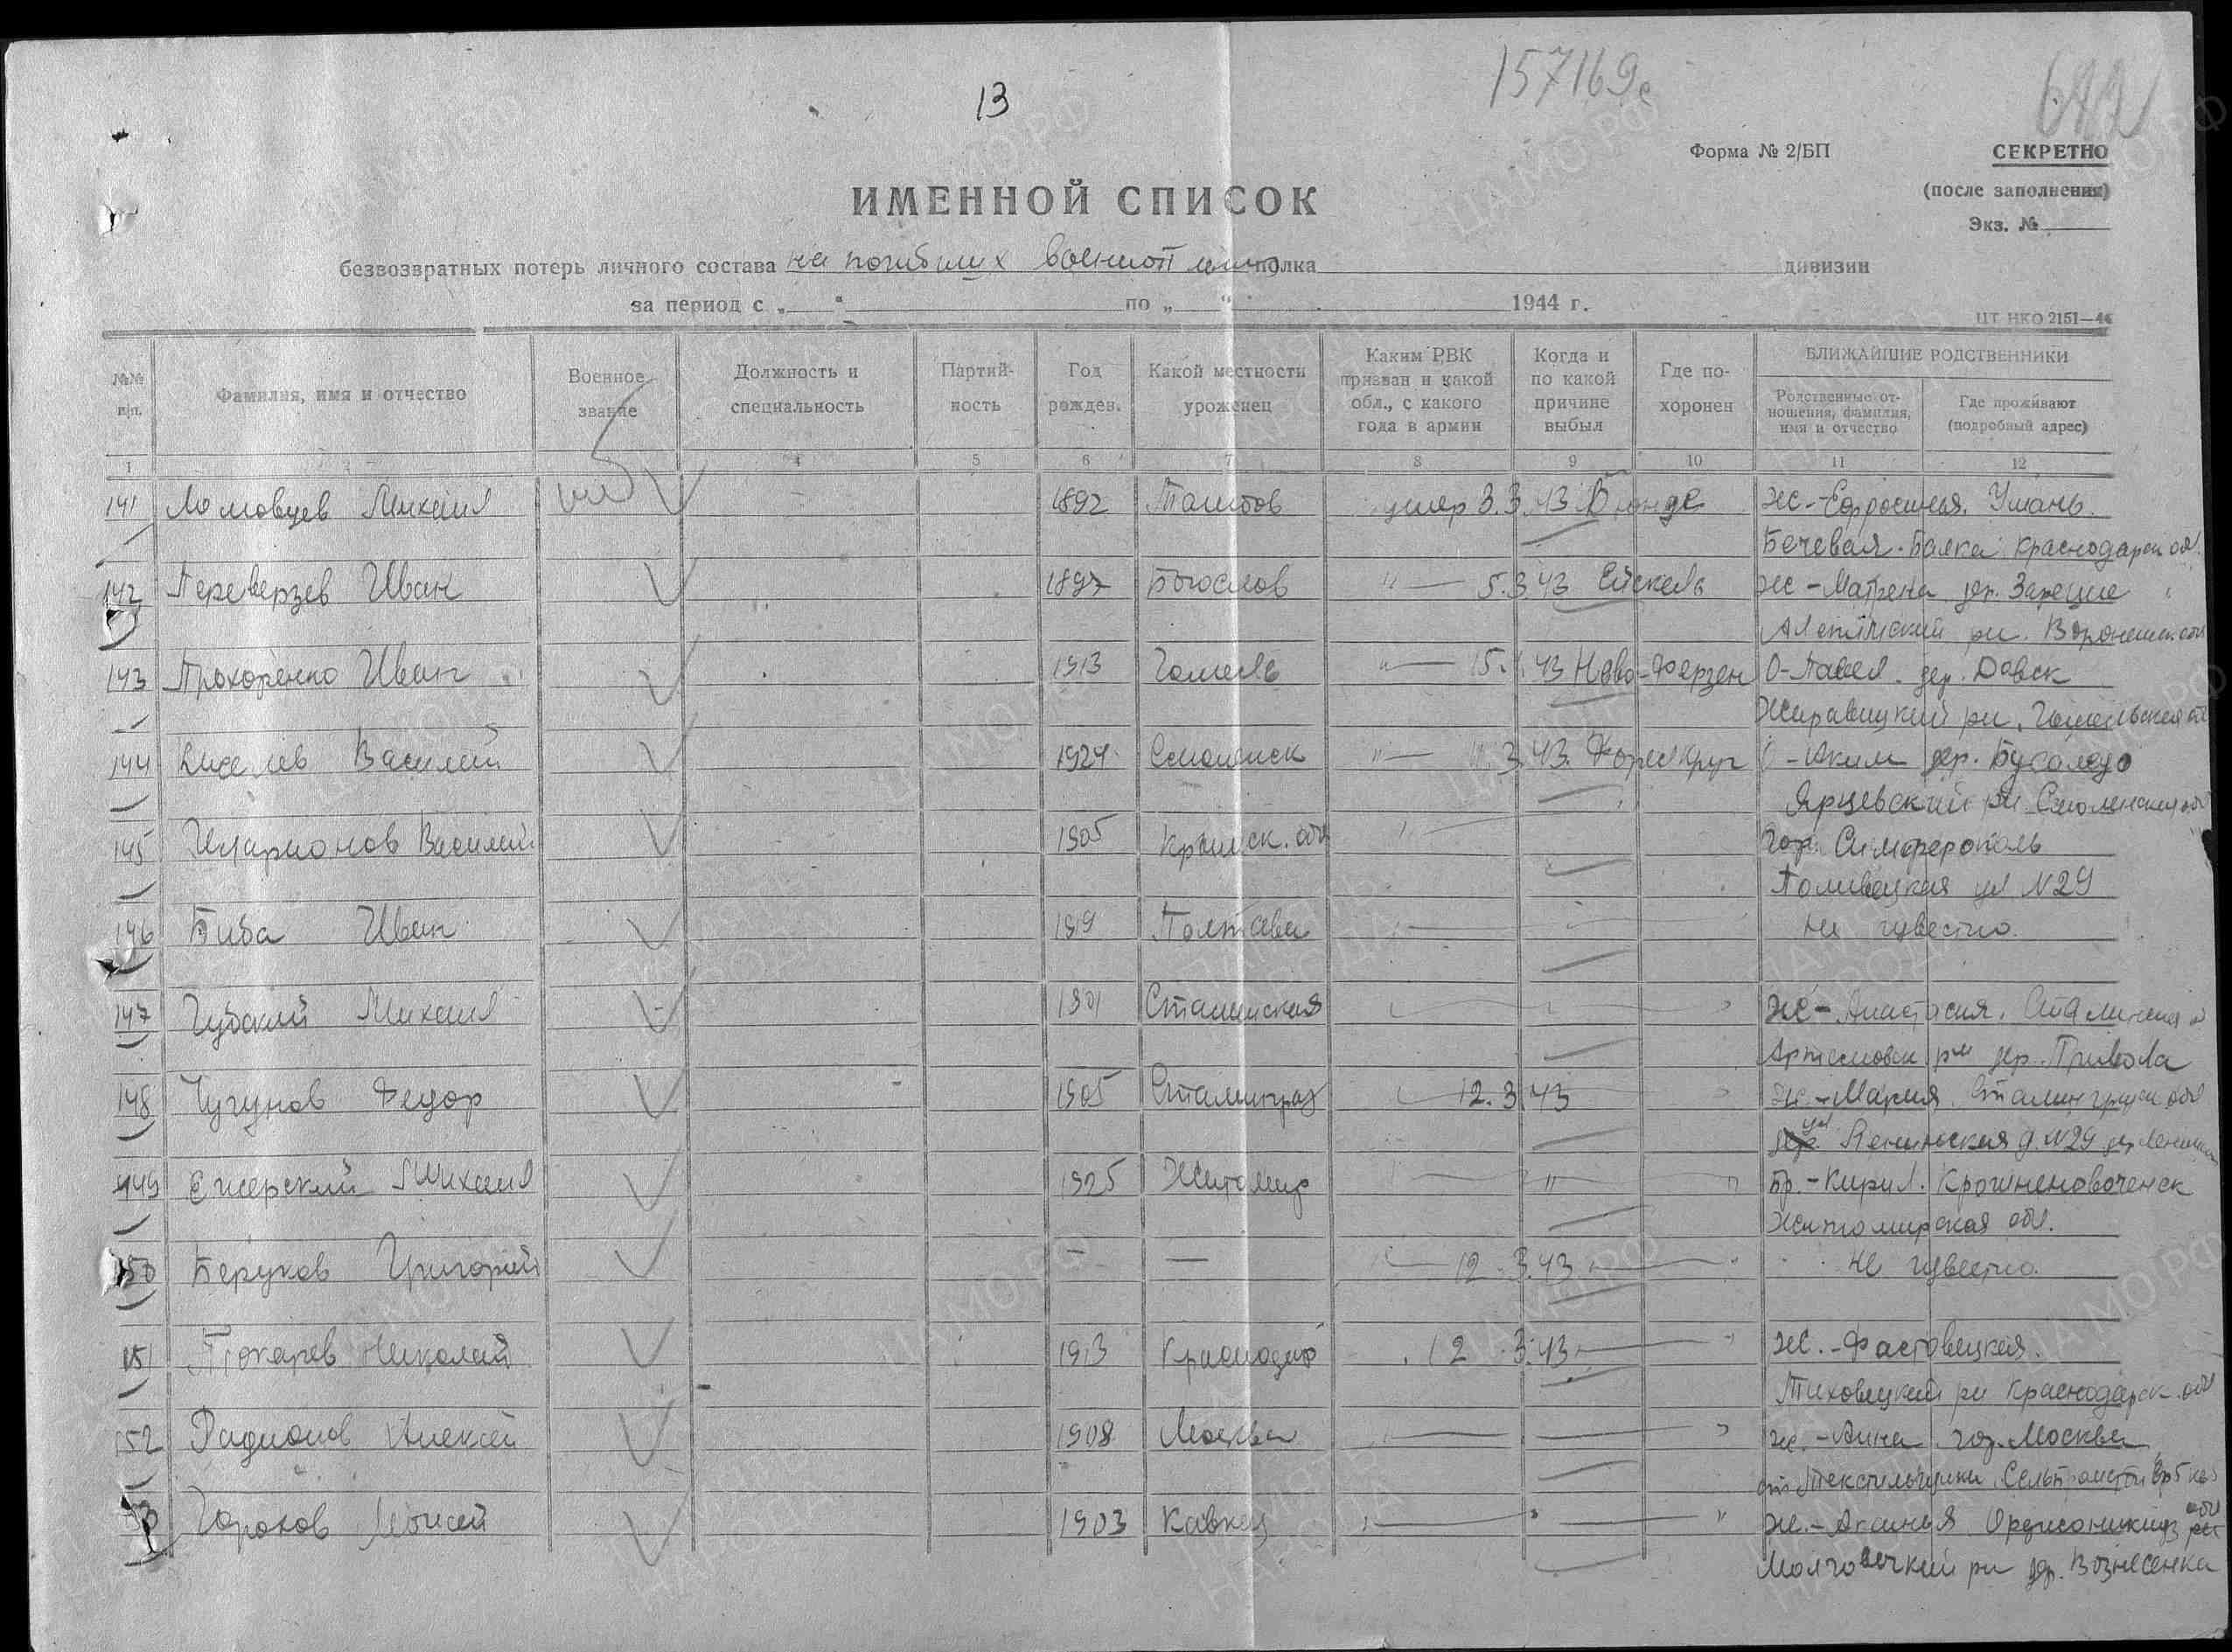 13
157169с
Форма № 2/БП
СЕКРЕТНО
(после заполнения)
Экз. №
ИМЕННОЙ СПИСОК
безвозвратных потерь личного состава на погибших военноп полка дивизии
за период с „ “ по „ “ 1944 г.
ЦТ НКО 2151—44
№№ п/п.
Фамилия, имя и отчество
Военное звание
Должность и специальность
Партийность
Год рожден.
Какой местности уроженец
Каким РВК призван и какой обл., с какого года в армии
Когда и по какой причине выбыл
Где похоронен
БЛИЖАЙШИЕ РОДСТВЕННИКИ
Родственные отношения, фамилия, имя и отчество
Где проживают (подробный адрес)
1 4 5 6 7 8 9 10 11 12
141 Ломовцев Михаил 1892 Тамбов умер 3.3.43 ж-Ефросиния. Умань
Бечевая. Балка Краснодарск обл.
142 Переверзев Иван 1897 Богослов " — 5.3.43 ж-Матрена дер. Заречие
рн. Воронежск обл
143 Прохоренко Иван 1913 Гомель " — 43 Ново-Ферзен О-Павел. дер. Довск
Журавицкий рн. Гомельская обл
144 Киселев Василий 1924 Смоленск " — 3.43. -Аким дер.
Ярцевский рн Смоленская обл
145 Иларионов Василий 1905 Крымск. обл " Гор. Симферополь
ул N29
146 Биба Иван 1919 Полтава не известно.
147 Губский Михаил 1901 Сталинская ж-Анастасия. Сталинская
Артемовск рн дер.
148 Чугунов Федор 1905 Сталинград 12.3.43 ж-Мария. Сталинградск обл
ул Ленинская д. N29
149 Михаил 1925 Житомир " " Бр.-Кирил.
Житомирская обл.
150 Беруков Григорий — — " — 12.3.43 — " не известно.
151 Токарев Николай 1913 Краснодар 12.3.43 — " ж.-Фастовецкая.
Тиховецкий рн Краснодарск. обл
152 Радионов Алексей 1908 Москва " — — " ж.-Анна гор. Москва
ст Текстильщики
Горохов Моисей 1903 Кавказ " — " — " ж.-Аксинья Орджоникидз обл
рн дер. Вознесенка